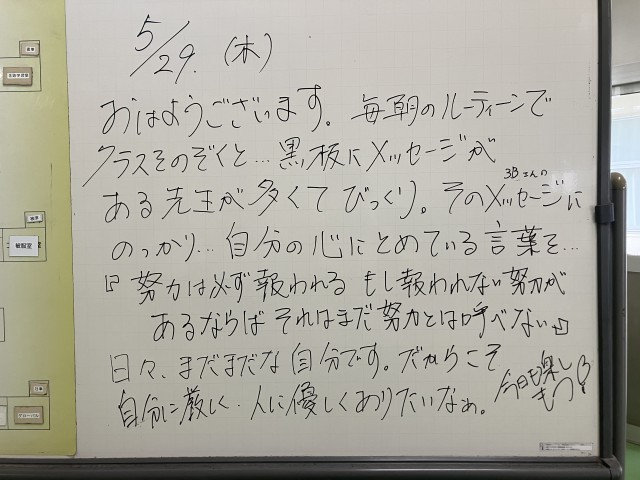 5/29. (木)
おはようございます。毎朝のルーティーンで
クラスをのぞくと…黒板にメッセージが
ある先生が多くてびっくり。そのメッセージに
3Bさんの
のっかり…自分の心にとめている言葉を…
『努力は必ず報われる もし報われない努力が
あるならば それはまだ努力とは呼べない』
日々、まだまだな自分です。だからこそ
自分に厳しく、人に優しくありたいなぁ。
今日も楽し
もう!
被服室